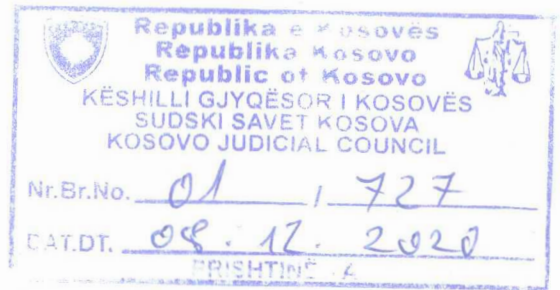 Republika e Kosovës
Republika Kosovo
Republic of Kosovo
KËSHILLI GJYQËSOR I KOSOVËS
SUDSKI SAVET KOSOVA
KOSOVO JUDICIAL COUNCIL
Nr.Br.No. 01 / 727
DAT.DT. 08. 12. 2020
PRISHTINË